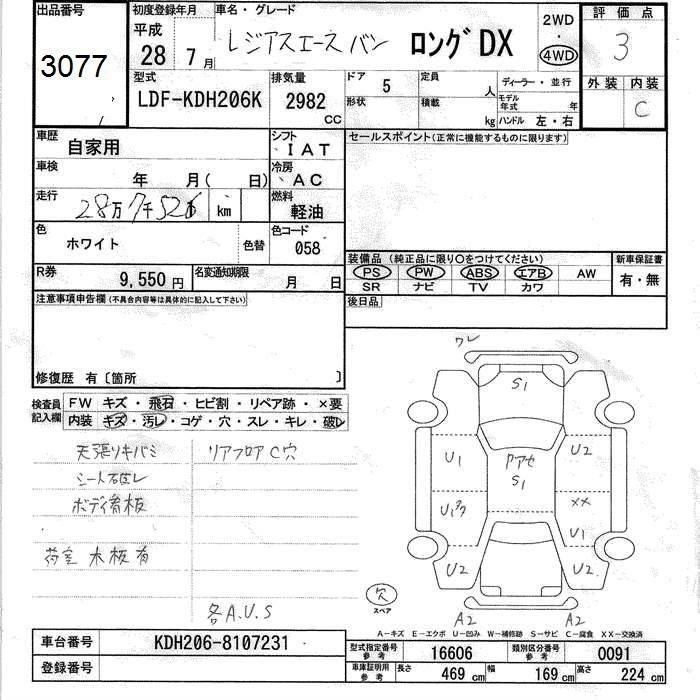 出品番号 初度登録年月 車名・グレード 2WD 評価点
3077 平成 28 7月 レジアスエース バン ロング DX 4WD 3
型式 排気量 ドア 定員 ディーラー・並行 外装 内装
LDF-KDH206K 2982 CC 5 人 モデル年式 年 C
形状 積載 kg ハンドル 左・右
車歴 自家用 シフト IAT セールスポイント(正常に機能するものに限ります)
車検 年 月( 日) 冷房 AC
走行 28万7千526 km 燃料 軽油
色 ホワイト 色替 色コード 058
装備品(純正品に限り○をつけてください) 新車保証書
R券 9,550円 名変通知期限 月 日 PS PW ABS エアB AW 有・無
SR ナビ TV カワ
注意事項申告欄(不具合内容等は具体的に記入して下さい) 後日品
修復歴 有〔箇所 〕
検査員記入欄 FW キズ・飛石・ヒビ割・リペア跡・×要
内装 キズ・汚レ・コゲ・穴・スレ・キレ・破レ
天張リキバミ リアフロアC穴
シート破レ
ボディ看板
荷室 木板有
各A.U.S
ワレ
S1
U1 アアセ U2
S1
U1ク XX
U1
U2 U2
欠
スペア A2 A2
A-キズ E-エクボ U-凹み W-補修跡 S-サビ C-腐食 XX-交換済
車台番号 KDH206-8107231 型式指定番号 参考 16606 類別区分番号 参考 0091
登録番号 車庫証明用 参考 長さ 469 cm 幅 169 cm 高さ 224 cm